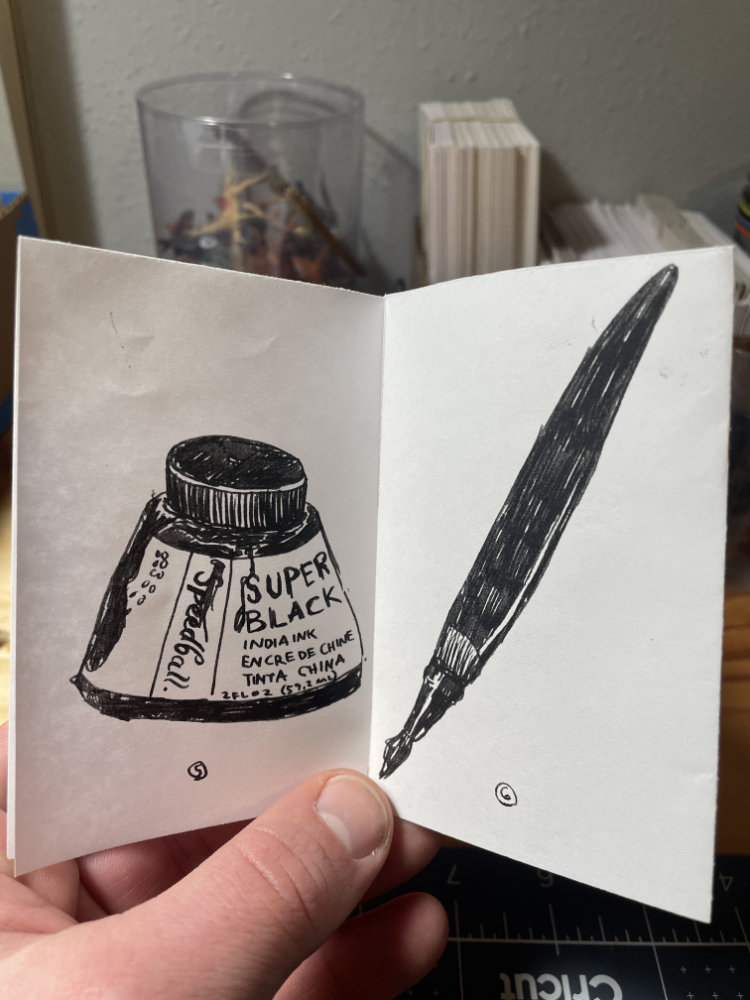 Speedball.
SUPER
BLACK
INDIA INK
ENCRE DE CHINE
TINTA CHINA
2 FL OZ (59.2 mL)
5
6
7
6
4
Cricut